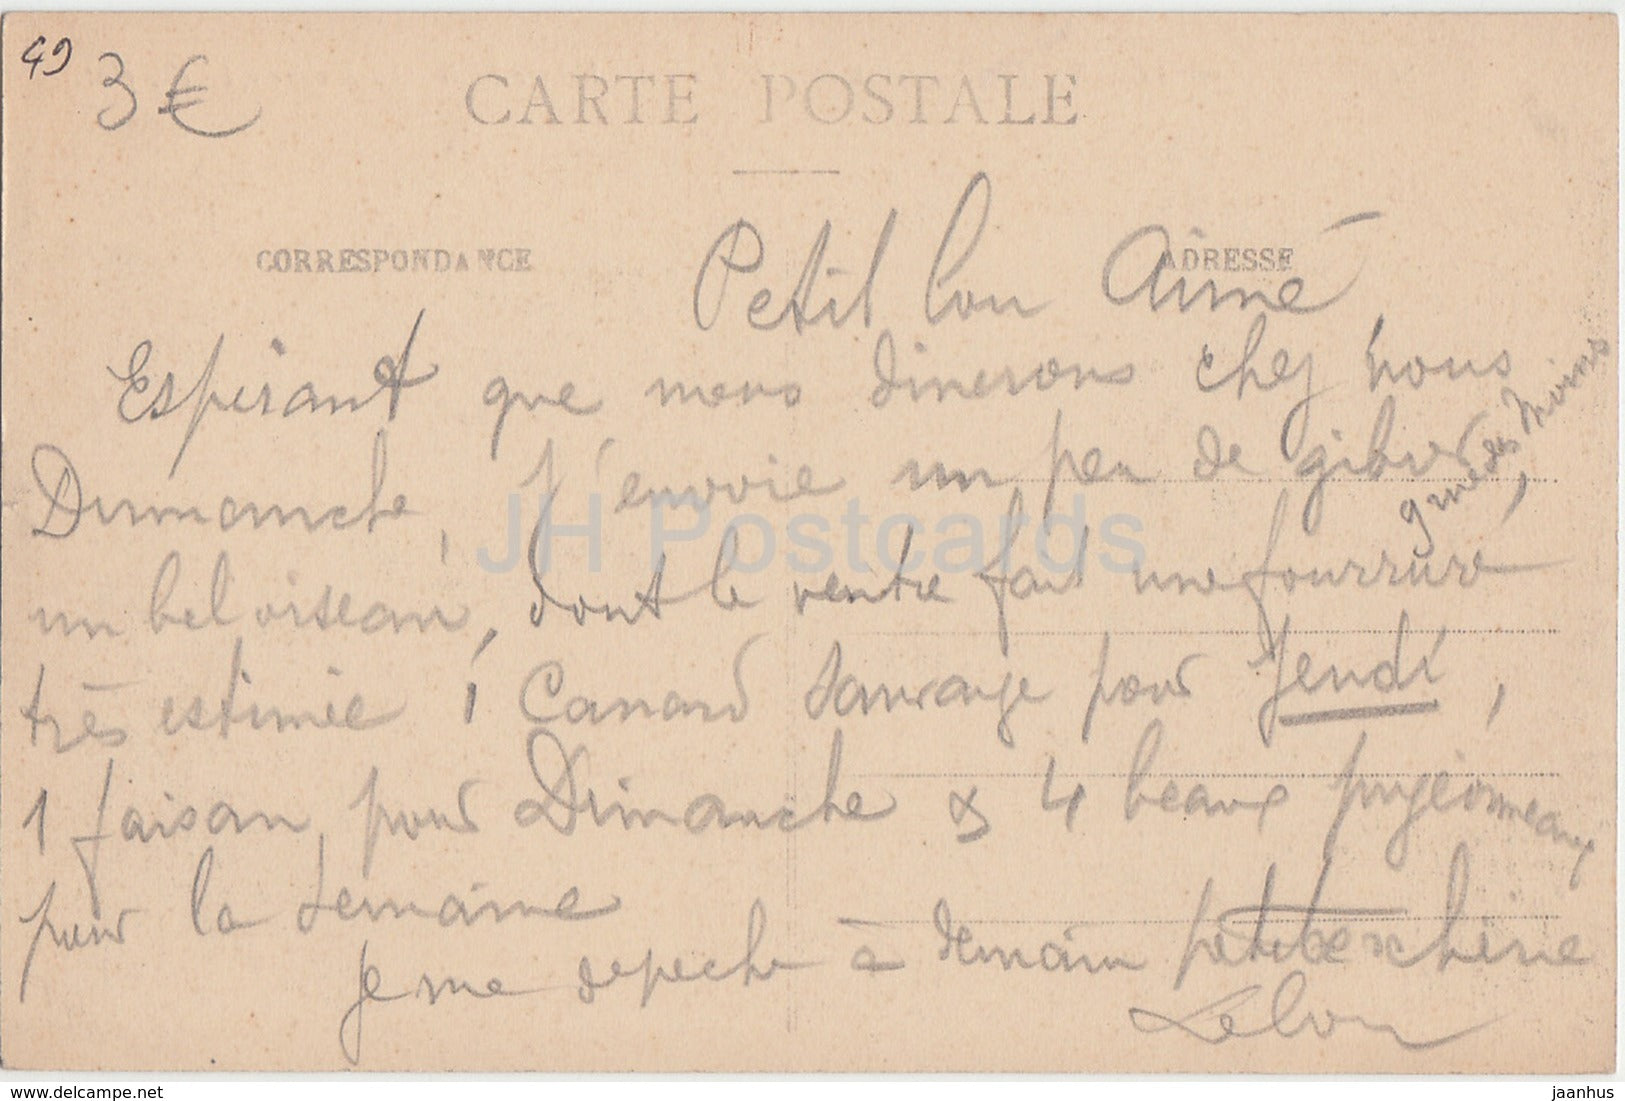 49
3 €
CARTE POSTALE
CORRESPONDANCE
ADRESSE
Petit lou Aimé,
Espérant que nous dinerons chez nous
Dimanche, J'envoie un peu de gibier,
grue des
un bel oiseau, dont le ventre fait une fourrure
très estimée 1 Canard Sauvage pour Jeudi,
1 faisan, pour Dimanche & 4 beaux pigeonneaux
pour la semaine
Je me depeche à demain petite cherie
Lelou
JH Postcards
delcampe.net
jaanhus